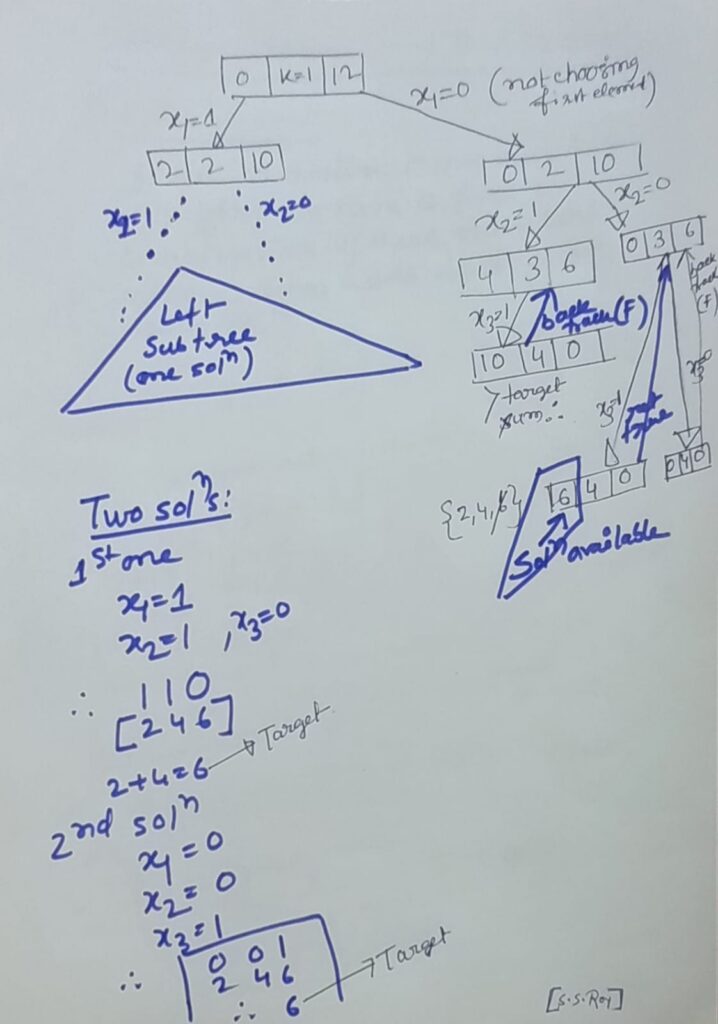 0 | k=1 | 12
x₁=1
x₁=0 (not choosing
first element)
2 | 2 | 10
0 | 2 | 10
x₂=1
x₂=0
x₂=1
x₂=0
4 | 3 | 6
0 | 3 | 6
Left
Subtree
(one solⁿ)
x₃=1
back
track(F)
back
track
(F)
10 | 4 | 0
> target
sum
x₃=1
x₃=0
6 | 4 | 0
0 | 4 | 0
{2,4,6}
Solⁿ available
Two solⁿs:
1st one
x₁=1
x₂=1 , x₃=0
∴ 1 1 0
[2 4 6]
2+4=6 → Target
2nd solⁿ
x₁=0
x₂=0
x₃=1
∴ 0 0 1
2 4 6
∴ 6 → Target
[S.S.Roy]